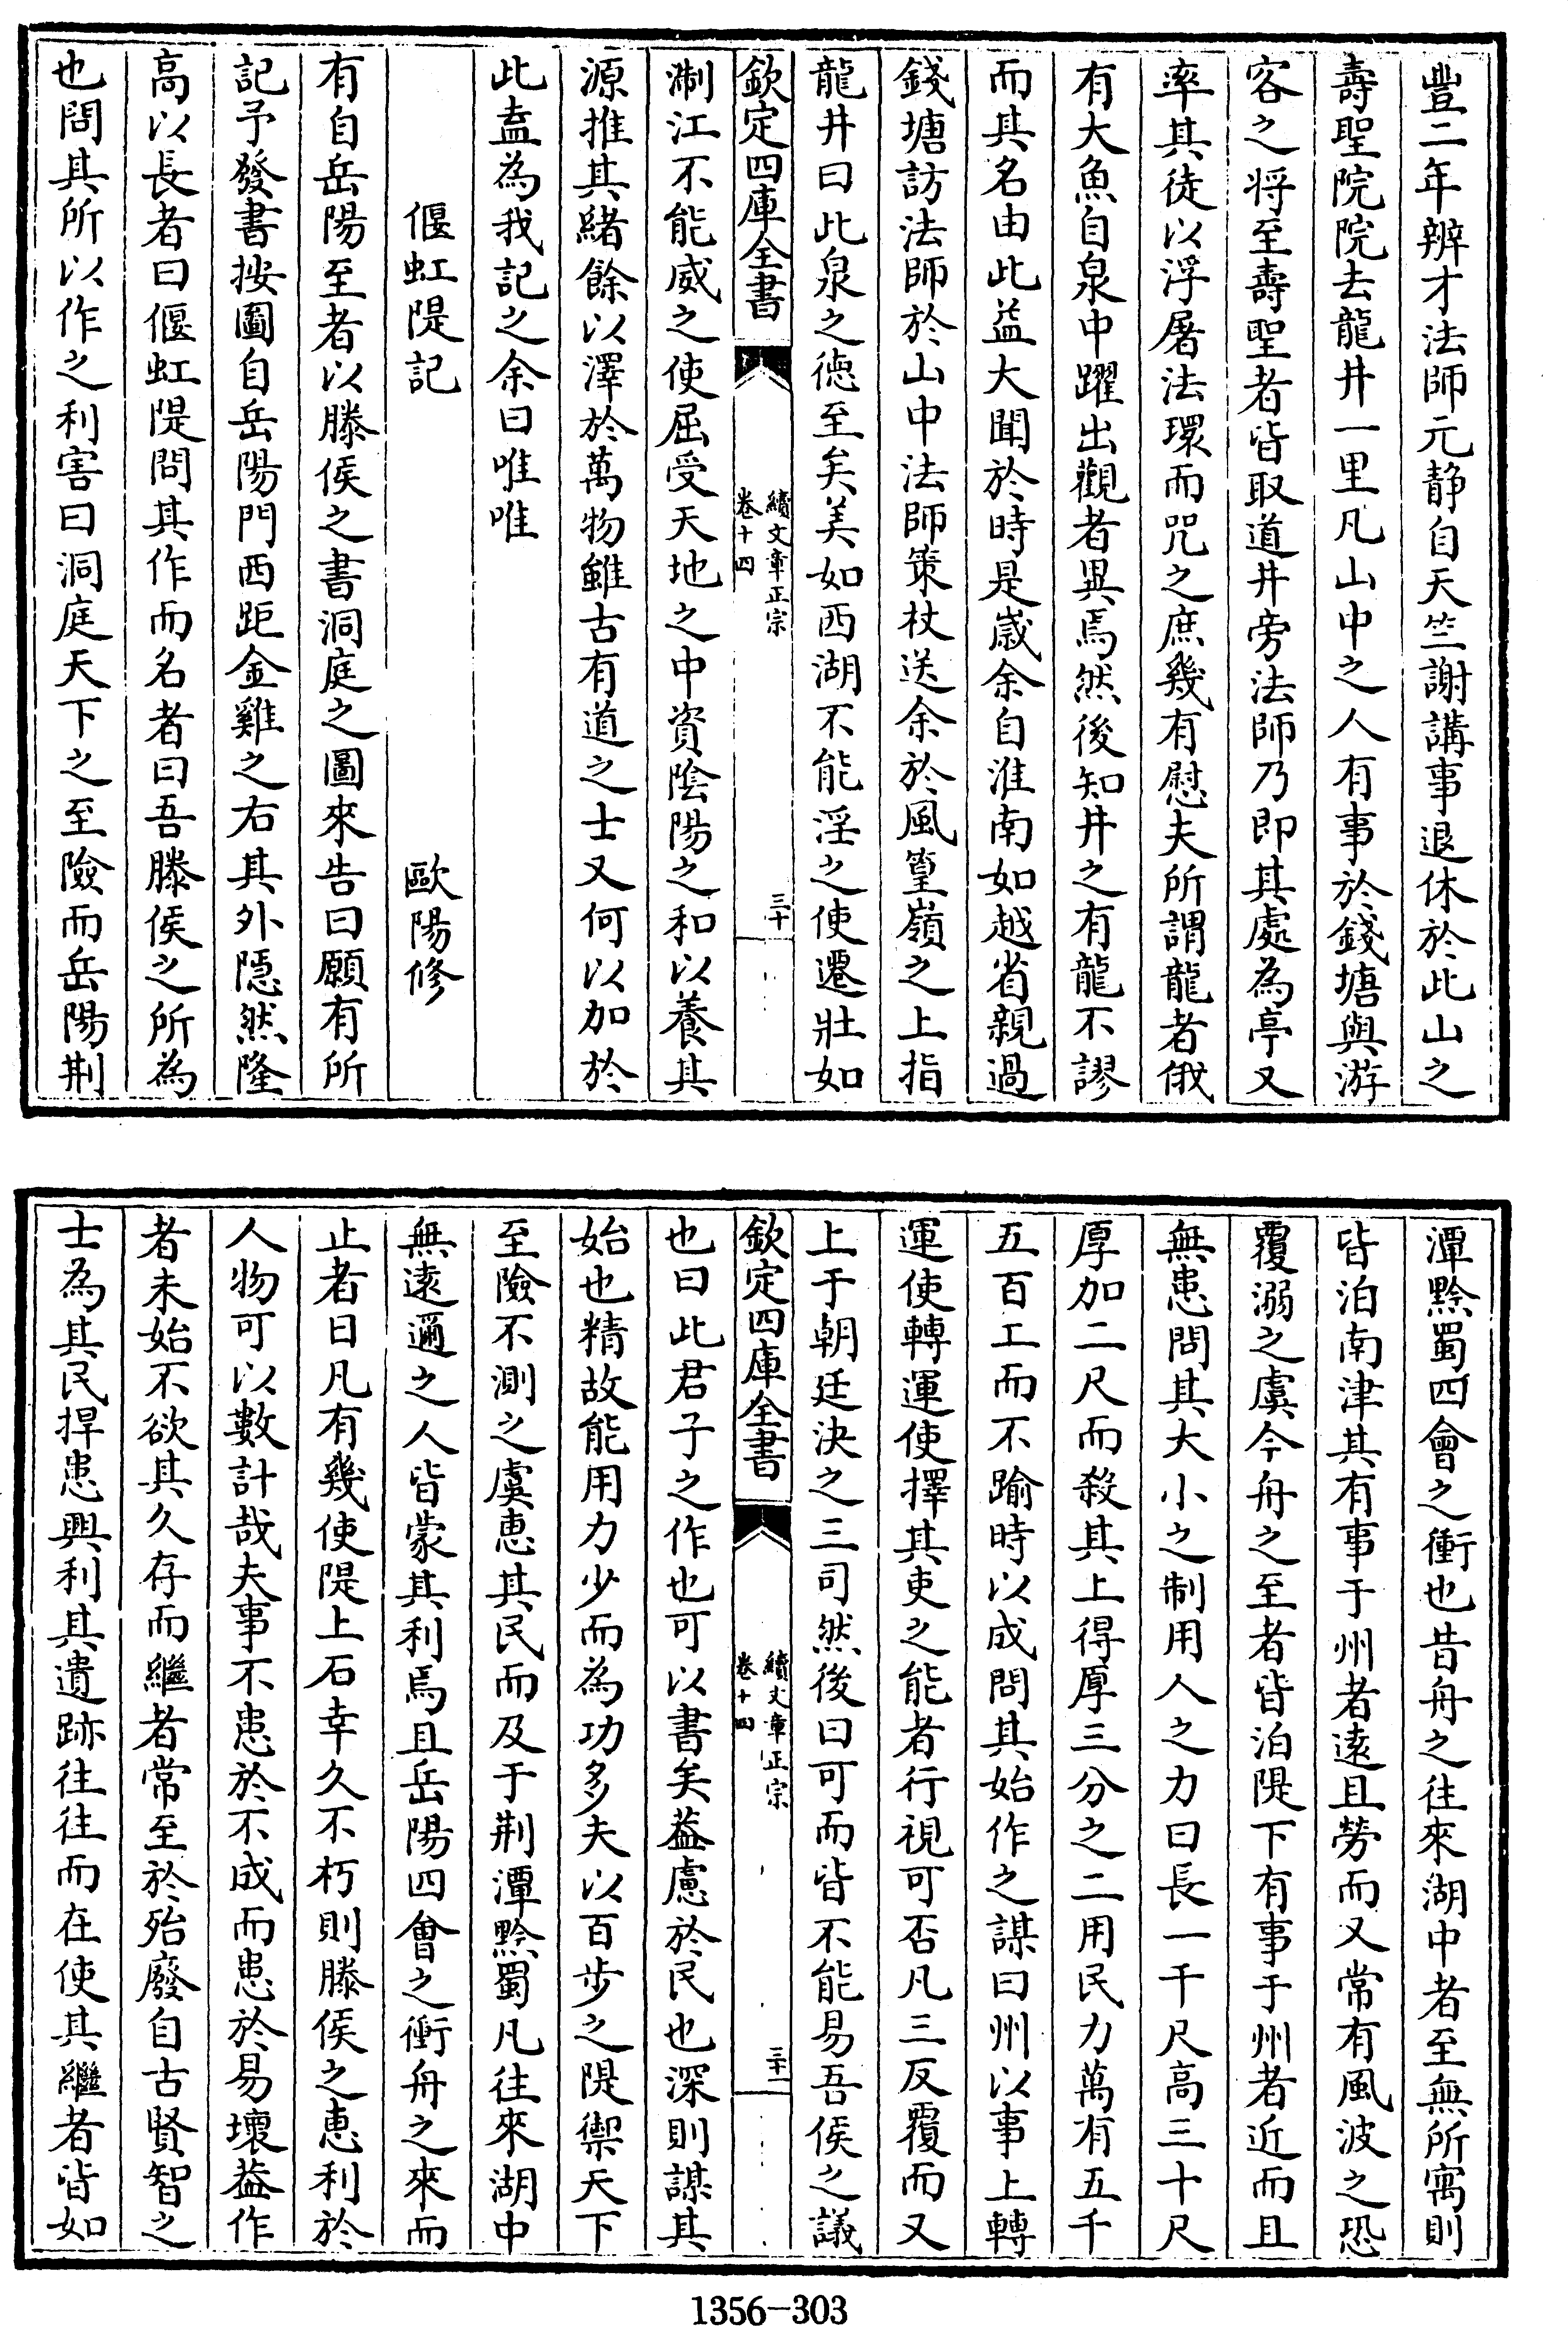 豐二年辨才法師元静自天竺謝講事退休於此山之
壽聖院院去龍井一里凡山中之人有事於錢塘與游
客之将至壽聖者皆取道井旁法師乃即其處為亭又
率其徒以浮屠法環而咒之庶幾有慰夫所謂龍者俄
有大魚自泉中躍出觀者異焉然後知井之有龍不謬
而其名由此益大聞於時是嵗余自淮南如越省親過
錢塘訪法師於山中法師策杖送余於風篁嶺之上指
龍井曰此泉之徳至矣美如西湖不能淫之使遷壯如
欽定四庫全書
續文章正宗
卷十四
三十
淛江不能威之使屈受天地之中資隂陽之和以養其
源推其緒餘以澤於萬物雖古有道之士又何以加於
此盍為我記之余曰唯唯
偃虹隄記
歐陽修
有自岳陽至者以滕侯之書洞庭之圖來告曰願有所
記予發書按圖自岳陽門西距金雞之右其外隱然隆
高以長者曰偃虹隄問其作而名者曰吾滕侯之所為
也問其所以作之利害曰洞庭天下之至險而岳陽荆
潭黔蜀四㑹之衝也昔舟之往來湖中者至無所寓則
皆泊南津其有事于州者逺且勞而又常有風波之恐
覆溺之虞今舟之至者皆泊隄下有事于州者近而且
無患問其大小之制用人之力曰長一千尺髙三十尺
厚加二尺而殺其上得厚三分之二用民力萬有五千
五百工而不踰時以成問其始作之謀曰州以事上轉
運使轉運使擇其吏之能者行視可否凡三反覆而又
上于朝廷決之三司然後曰可而皆不能易吾侯之議
欽定四庫全書
續文章正宗
卷十四
三十一
也曰此君子之作也可以書矣葢慮於民也深則謀其
始也精故能用力少而為功多夫以百步之隄禦天下
至險不測之虞恵其民而及于荆潭黔蜀凡往來湖中
無逺邇之人皆蒙其利焉且岳陽四㑹之衝舟之來而
止者日凡有幾使隄上石幸久不朽則滕侯之恵利於
人物可以數計哉夫事不患於不成而患於易壞葢作
者未始不欲其久存而繼者常至於殆廢自古賢智之
士為其民捍患興利其遺跡往往而在使其繼者皆如
1356-303